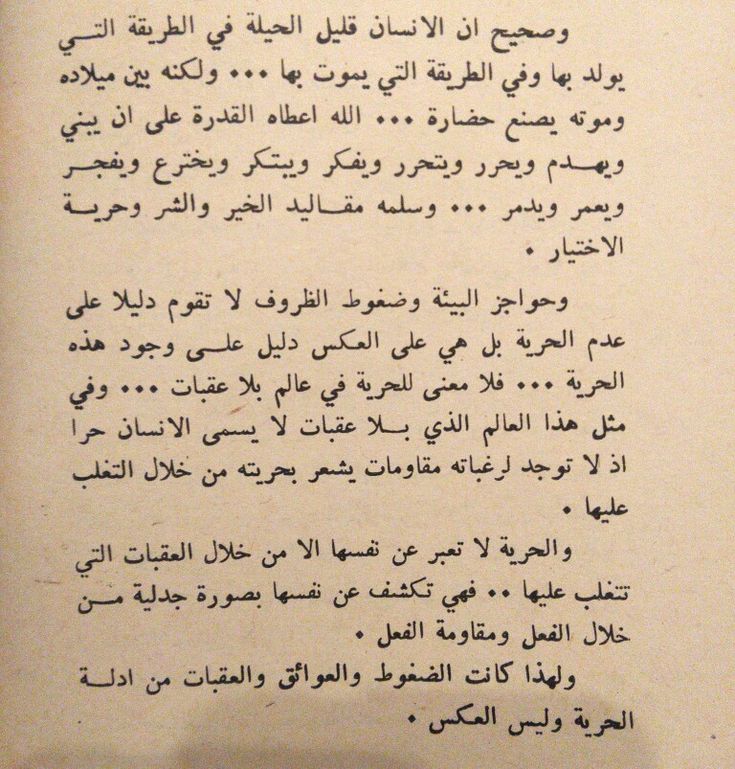 وصحيح ان الانسان قليل الحيلة في الطريقة التـي
يولد بها وفي الطريقة التي يموت بها ... ولكنه بين ميلاده
وموته يصنع حضارة ... الله اعطاه القدرة على ان يبني
ويهـدم ويحرر ويتحرر ويفكر ويبتكر ويخترع ويفجـر
ويعمر ويدمر ... وسلمه مقـاليد الخير والشر وحريـة
الاختيار .
وحواجز البيئة وضغوط الظروف لا تقوم دليلا على
عدم الحرية بل هي على العكس دليل علـى وجود هذه
الحرية ... فلا معنى للحرية في عالم بلا عقبات ... وفي
مثل هذا العالم الذي بـلا عقبات لا يسمى الانسان حرا
اذ لا توجد لرغباته مقاومات يشعر بحريته من خلال التغلب
عليها .
والحرية لا تعبر عن نفسها الا من خلال العقبات التي
تتغلب عليها .. فهي تكشف عن نفسها بصورة جدلية مـن
خلال الفعل ومقاومة الفعل .
ولهذا كانت الضغوط والعوائق والعقبات من ادلـة
الحرية وليس العكس .